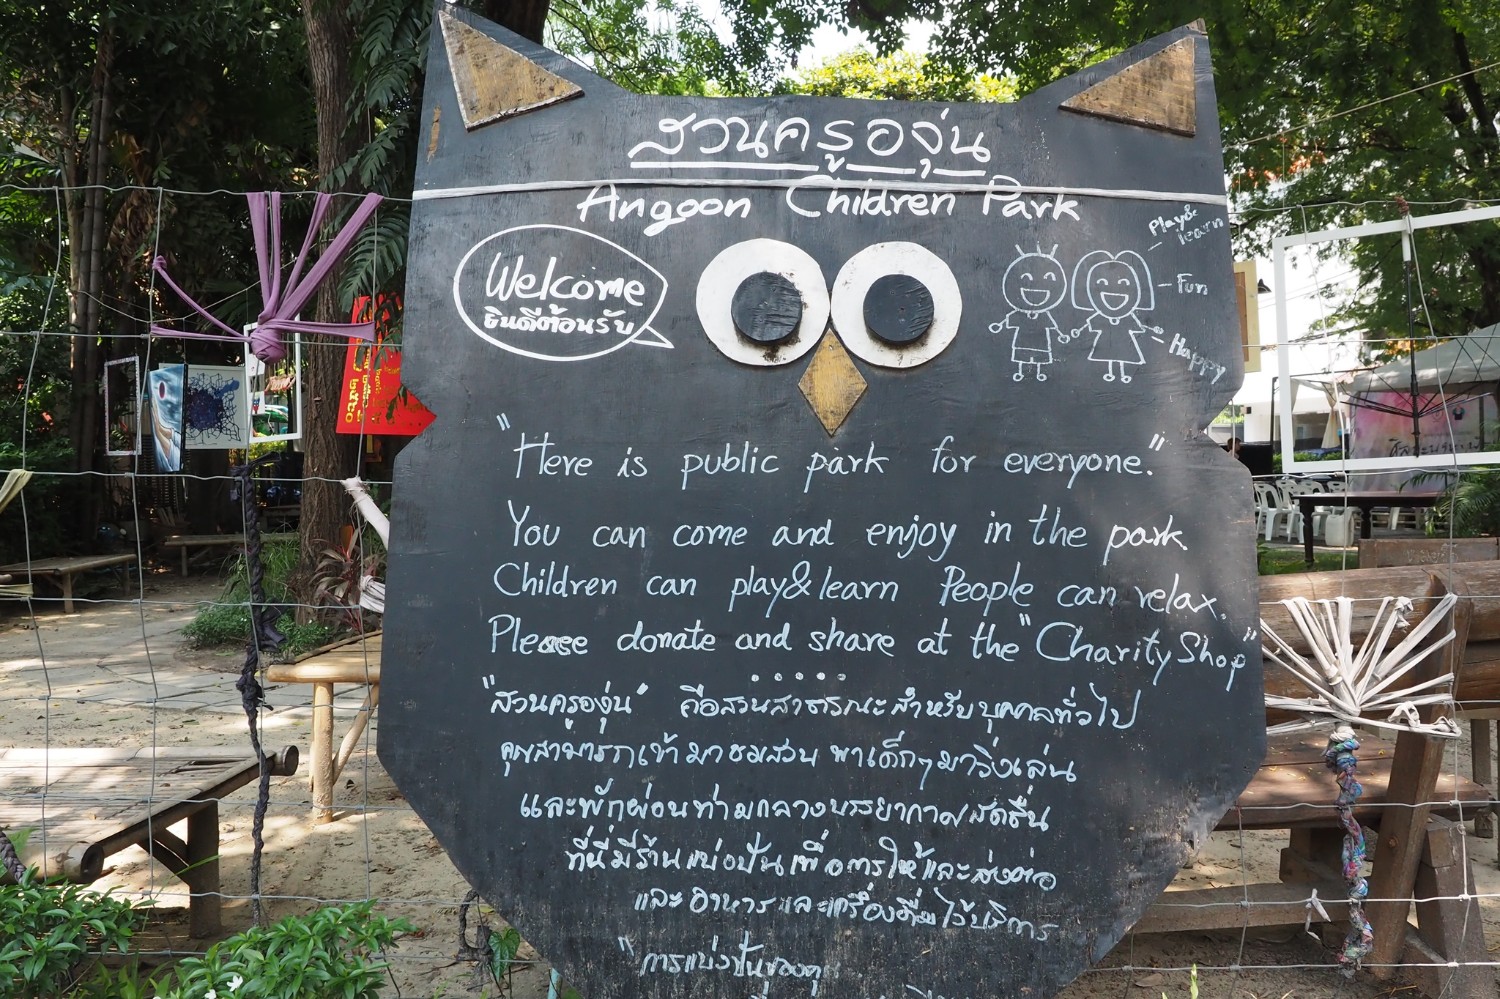 สวนครูองุ่น
Angoon Children Park
Welcome
ยินดีต้อนรับ
Play&
learn
Fun
Happy
"Here is public park for everyone."
You can come and enjoy in the park.
Children can play&learn People can relax.
Please donate and share at the "Charity Shop"
.....
"สวนครูองุ่น" คือสวนสาธารณะสำหรับบุคคลทั่วไป
คุณสามารถเข้ามาชมสวน พาเด็กๆมาวิ่งเล่น
และพักผ่อนท่ามกลางบรรยากาศสดชื่น
ที่นี่มีร้านแบ่งปันเพื่อการให้และส่งต่อ
และอาหารและเครื่องดื่มไว้บริการ
"การแบ่งปันของคุ